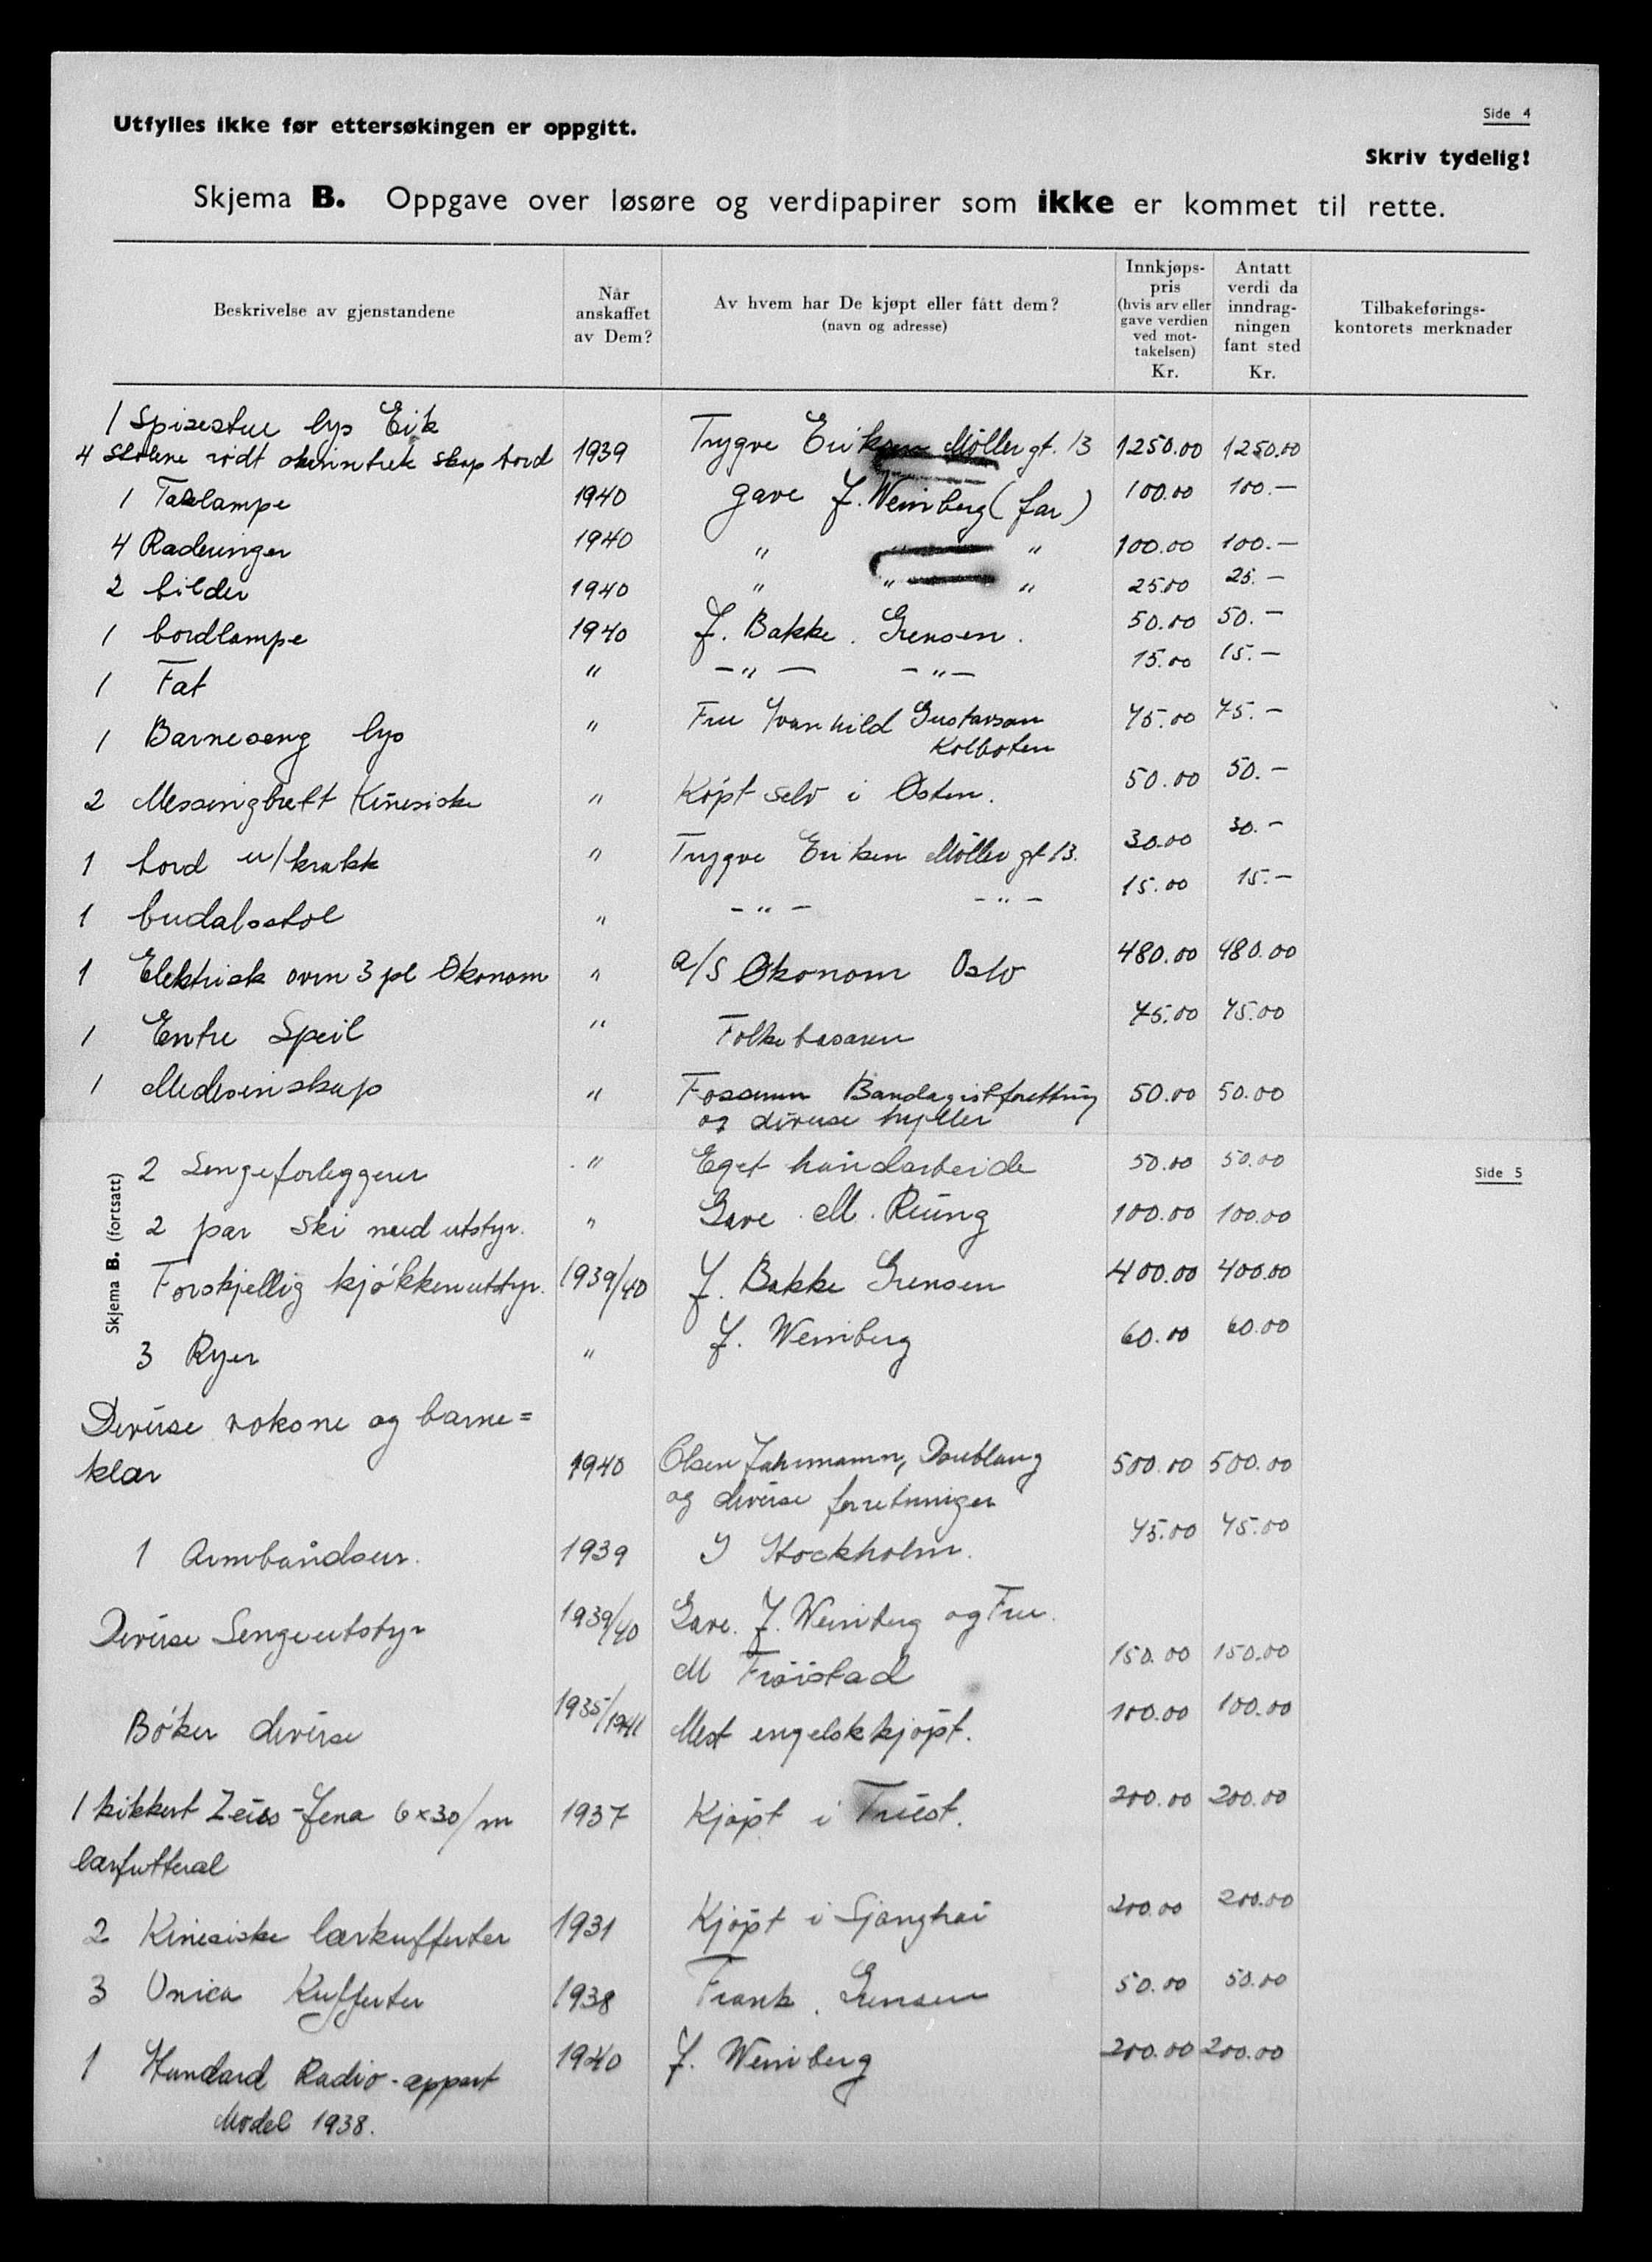 Side 4
Utfylles ikke før ettersøkingen er oppgitt.
Skriv tydelig!
Skjema B. Oppgave over løsøre og verdipapirer som ikke er kommet til rette.
Beskrivelse av gjenstandene
Når anskaffet av Dem?
Av hvem har De kjøpt eller fått dem? (navn og adresse)
Innkjøps-pris (hvis arv eller gave verdien ved mot-takelsen) Kr.
Antatt verdi da inndrag-ningen fant sted Kr.
Tilbakeførings-kontorets merknader
1 Spisestue lys Eik
4 stolene rødt skinntrekk skap bord 1939 Trygve Eriksen Møllergt. 13 1250.00 1250.00
1 Taklampe 1940 gave J. Weinberg (far) 100.00 100.—
4 Raderinger 1940 " " " 100.00 100.—
2 bilder 1940 " " " 25.00 25.—
1 bordlampe 1940 J. Bakke. Grensen. 50.00 50.—
1 Fat " —"— —"— 15.00 15.—
1 Barneseng lys " Fru Svanhild Gustavson 75.00 75.—
Kolboten
2 Messingbrett Kinesiske " Köpt selv i Østen. 50.00 50.—
1 bord u/krakk " Trygve Eriksen Møllergt 13. 30.00 30.—
1 budalsstol " —"— —"— 15.00 15.—
1 Elektrisk ovn 3 pl Økonom " A/S Økonom Oslo 480.00 480.00
1 Entre Speil " Folkebasaren 75.00 75.00
1 Medesinskap " Fossum Bandagistforettning 50.00 50.00
og diverse hyller
2 Sengeforleggerer " Eget håndarbeide 50.00 50.00
Side 5
Skjema B. (fortsatt)
2 par Ski med utstyr. " Gave M. Ruing 100.00 100.00
Forskjellig kjökkenutstyr. 1939/40 J. Bakke Grensen 400.00 400.00
3 Ryer " J. Weinberg 60.00 60.00
Diverse voksne og barne=
klær 1940 Olsen Jahrmann, Doublaug 500.00 500.00
og diverse forretninger
1 Armbåndsur. 1939 I Stockholm. 75.00 75.00
Diverse Sengeutstyr 1939/40 Gave. J. Weinberg og Fru.
M Fröistad 150.00 150.00
Böker diverse 1935/1941 Mest engelsk kjöpt. 100.00 100.00
1 kikkert Zeiss-Jena 6x30/m 1937 Kjöpt i Triest. 200.00 200.00
lærfutteral
2 Kinesiske lærkufferter 1931 Kjöpt i Sjanghai 200.00 200.00
3 Unica Kufferter 1938 Frank. Grensen 50.00 50.00
1 Standard Radio-apparat 1940 J. Weinberg 200.00 200.00
Model 1938.